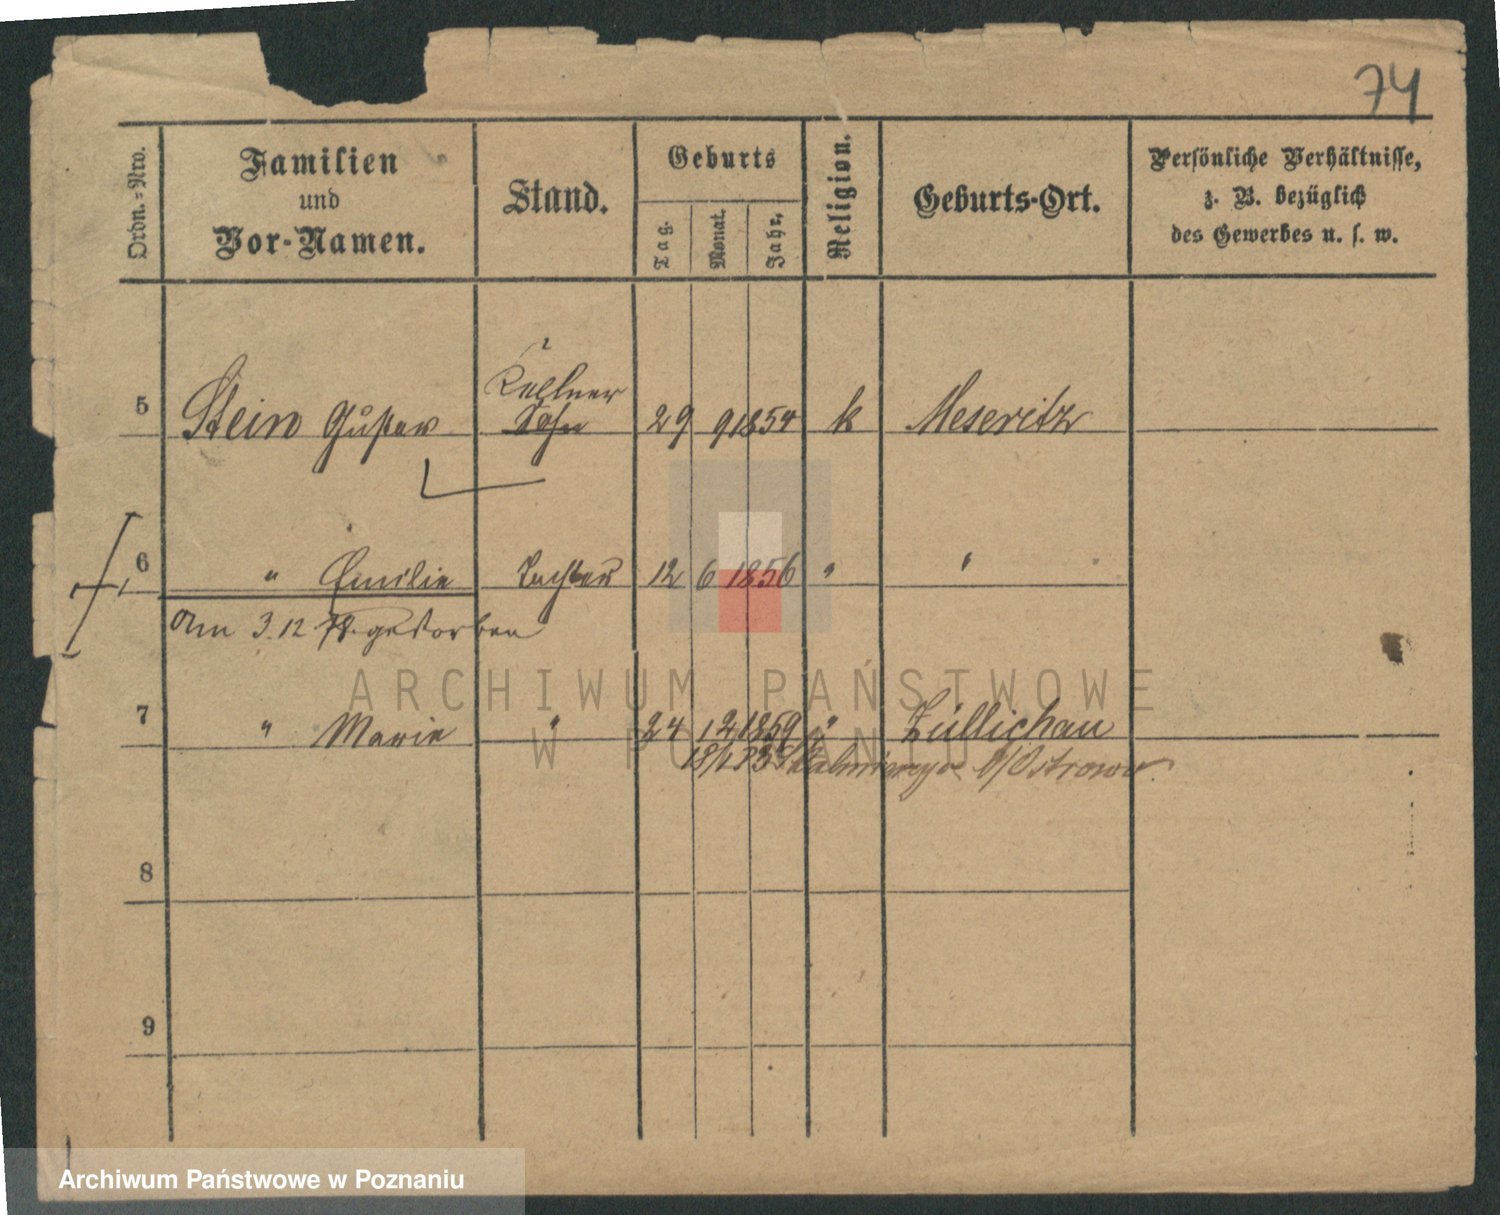 74
Ordn.-Nro.
Familien
und
Vor-Namen.
Stand.
Geburts
Tag.
Monat.
Jahr.
Religion.
Geburts-Ort.
Persönliche Verhältnisse,
z. B. bezüglich
des Gewerbes u. s. w.
Kellner
5 Stein Gustav Sohn 29 9 1854 k Meseritz
6 " Emilie Tochter 12 6 1856 " "
Am 3.12 78 gestorben
ARCHIWUM PAŃSTWOWE
7 " Marie " 24 12 1859 " Züllichau
W POZNANIU
Ostrowo
8
9
Archiwum Państwowe w Poznaniu